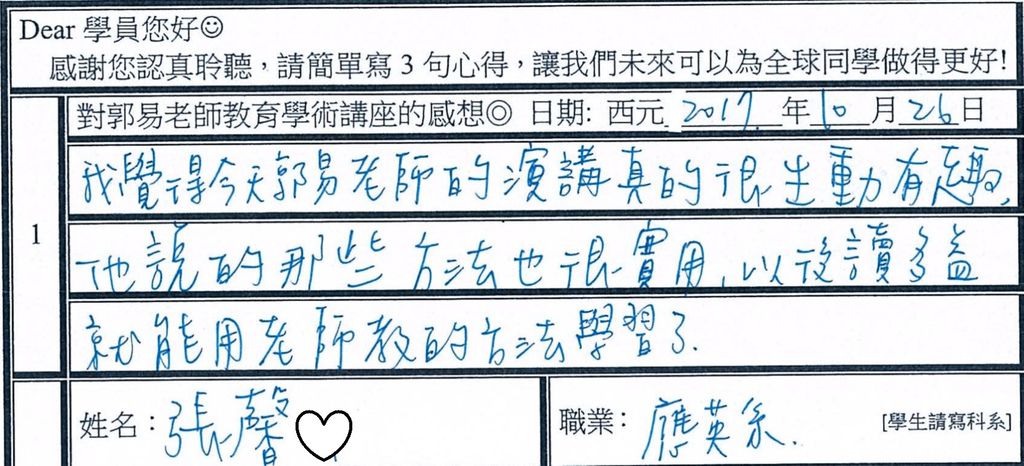 Dear 學員您好☺
感謝您認真聆聽，請簡單寫 3 句心得，讓我們未來可以為全球同學做得更好!
1
對郭易老師教育學術講座的感想◎ 日期: 西元 2017 年 10 月 26 日
我覺得今天郭易老師的演講真的很生動有趣,
他說的那些方法也很實用,以後讀多益
就能用老師教的方法學習了.
姓名：張馨♡
職業： 應英系. [學生請寫科系]